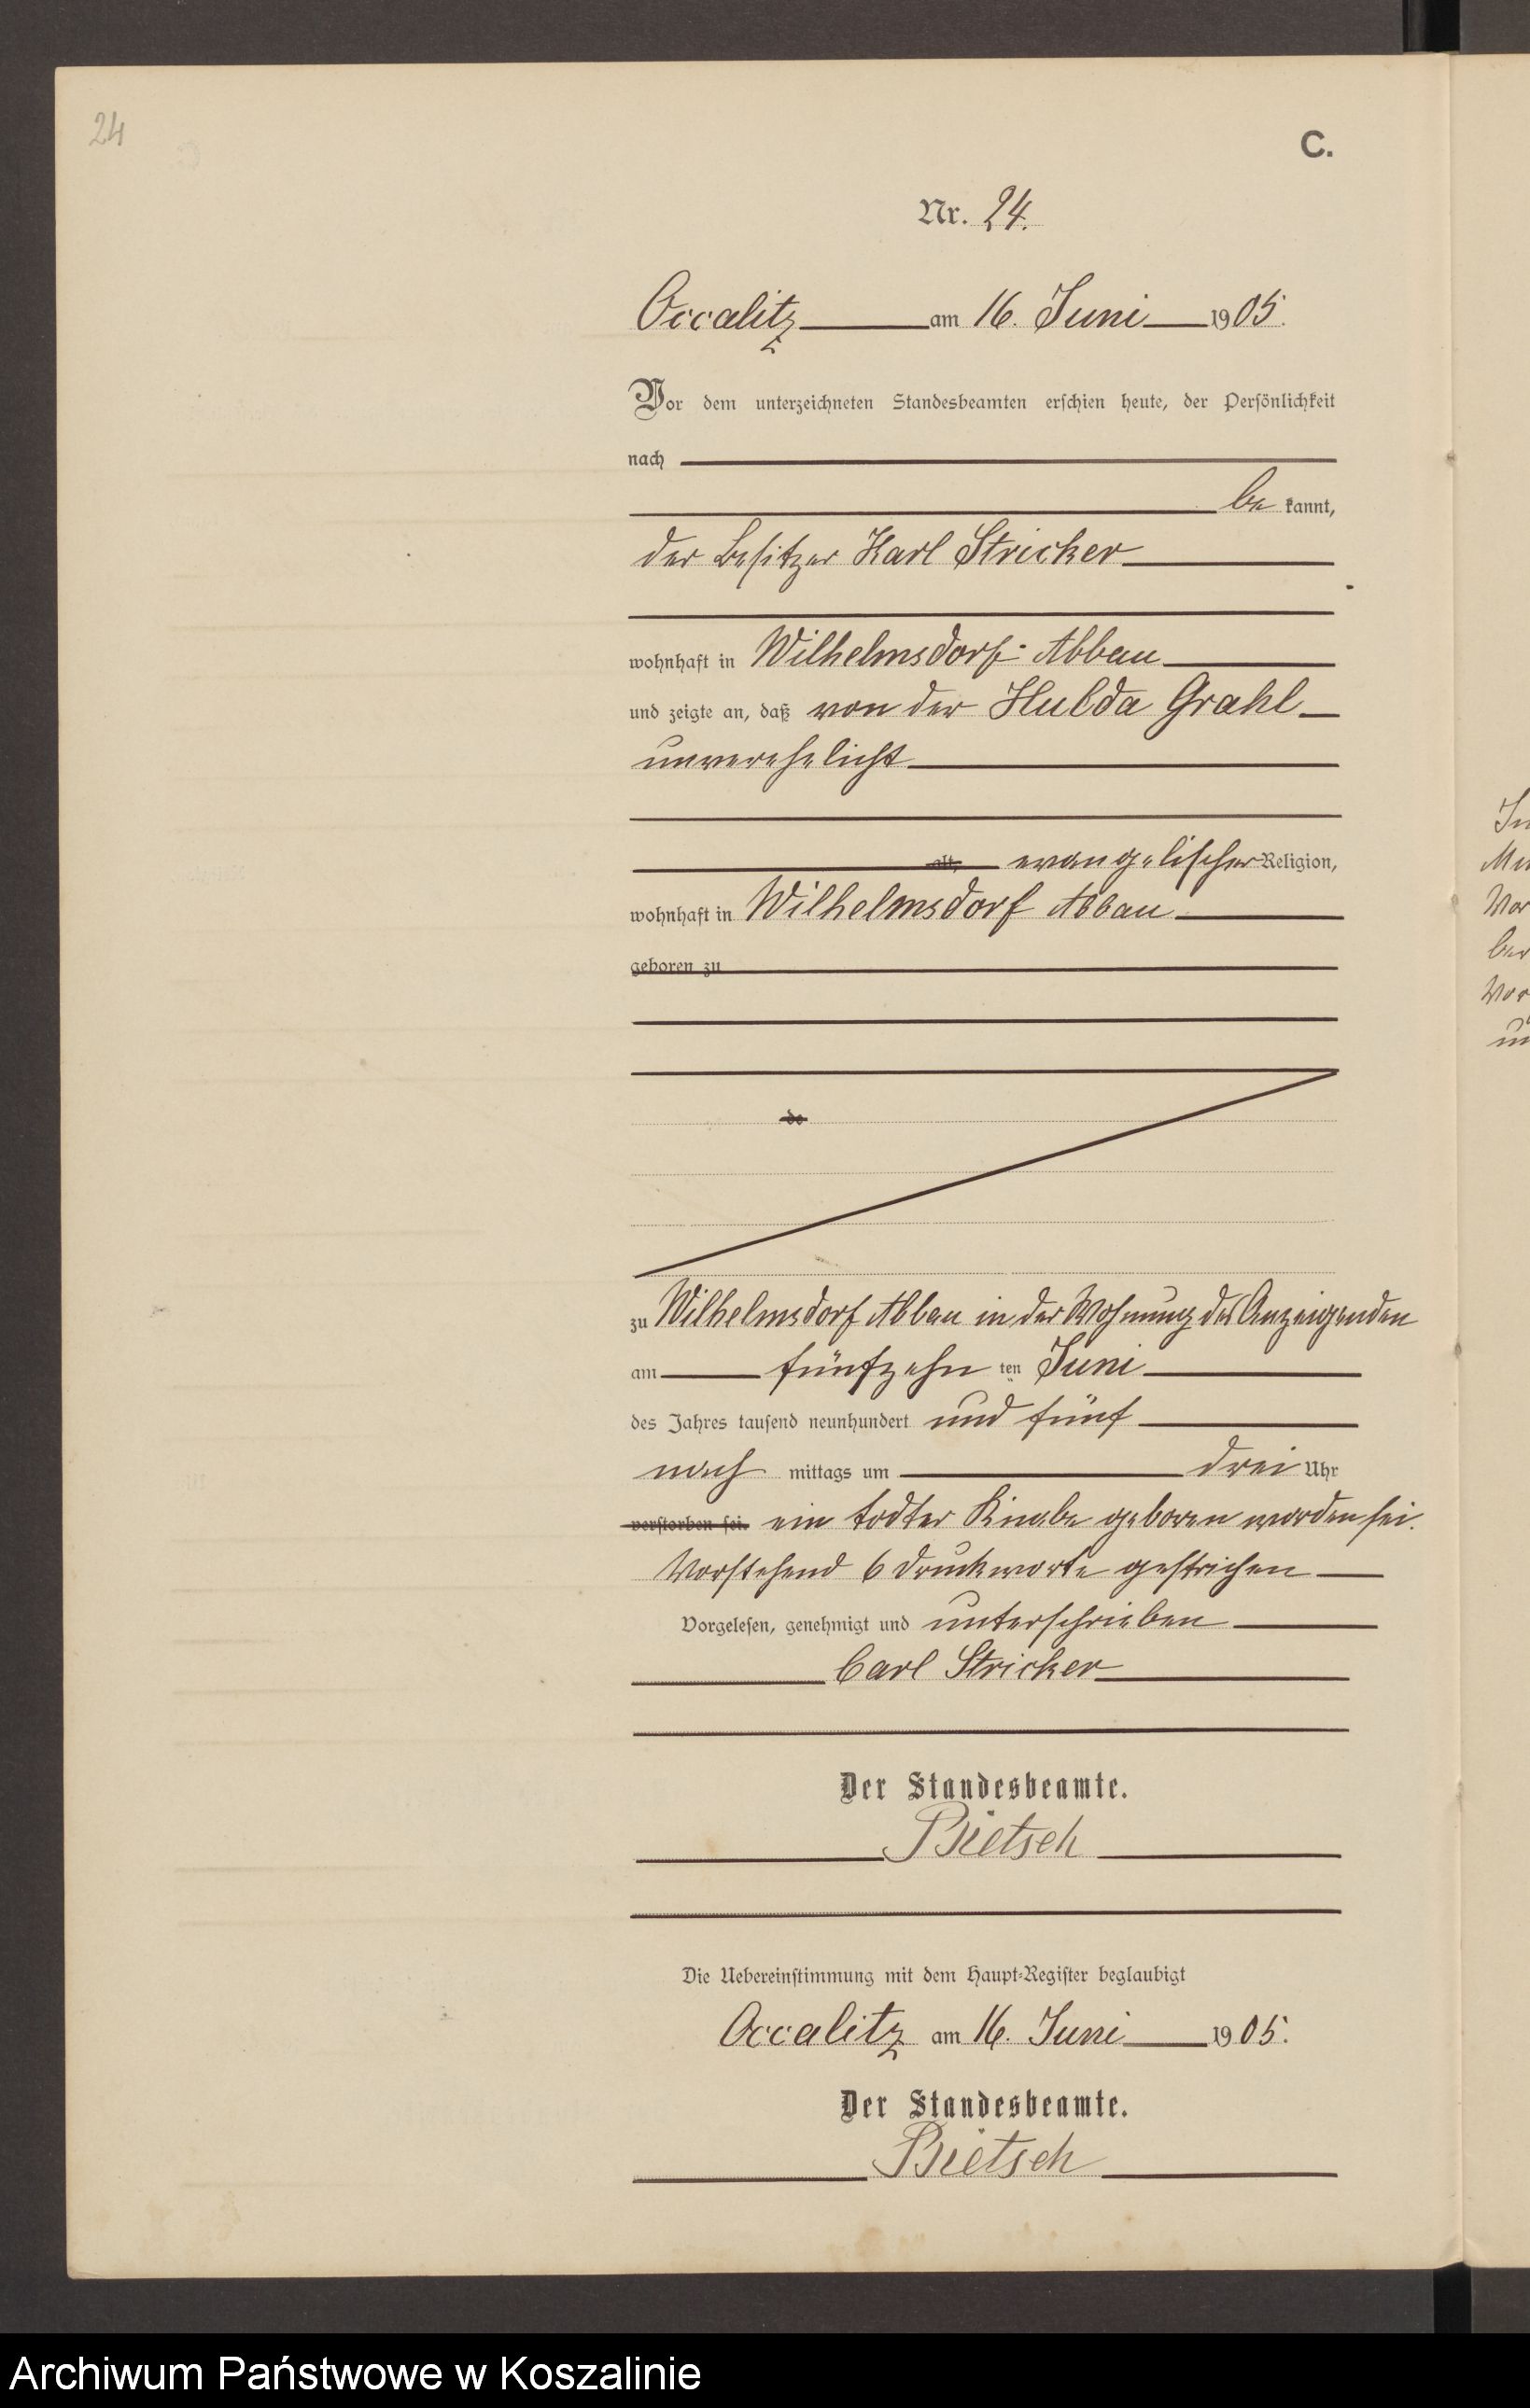 24
C.
Nr. 24.
Occalitz am 16. Juni 1905.
Vor dem unterzeichneten Standesbeamten erschien heute, der Persönlichkeit
nach
be kannt,
der Besitzer Karl Stricker
wohnhaft in Wilhelmsdorf-Abbau
und zeigte an, daß von der Hulda Grahl
unverehelicht
alt, evangelischer Religion,
wohnhaft in Wilhelmsdorf Abbau
geboren zu
de
zu Wilhelmsdorf Abbau in der Wohnung des Anzeigenden
am fünfzehn ten Juni
des Jahres tausend neunhundert und fünf
nach mittags um drei Uhr
verstorben sei. ein todter Knabe geboren worden sei.
Vorstehend 6 Druckworte gestrichen
Vorgelesen, genehmigt und unterschrieben
Carl Stricker
Der Standesbeamte.
Bietsch
Die Uebereinstimmung mit dem Haupt-Register beglaubigt
Occalitz am 16. Juni 1905.
Der Standesbeamte.
Bietsch
Archiwum Państwowe w Koszalinie